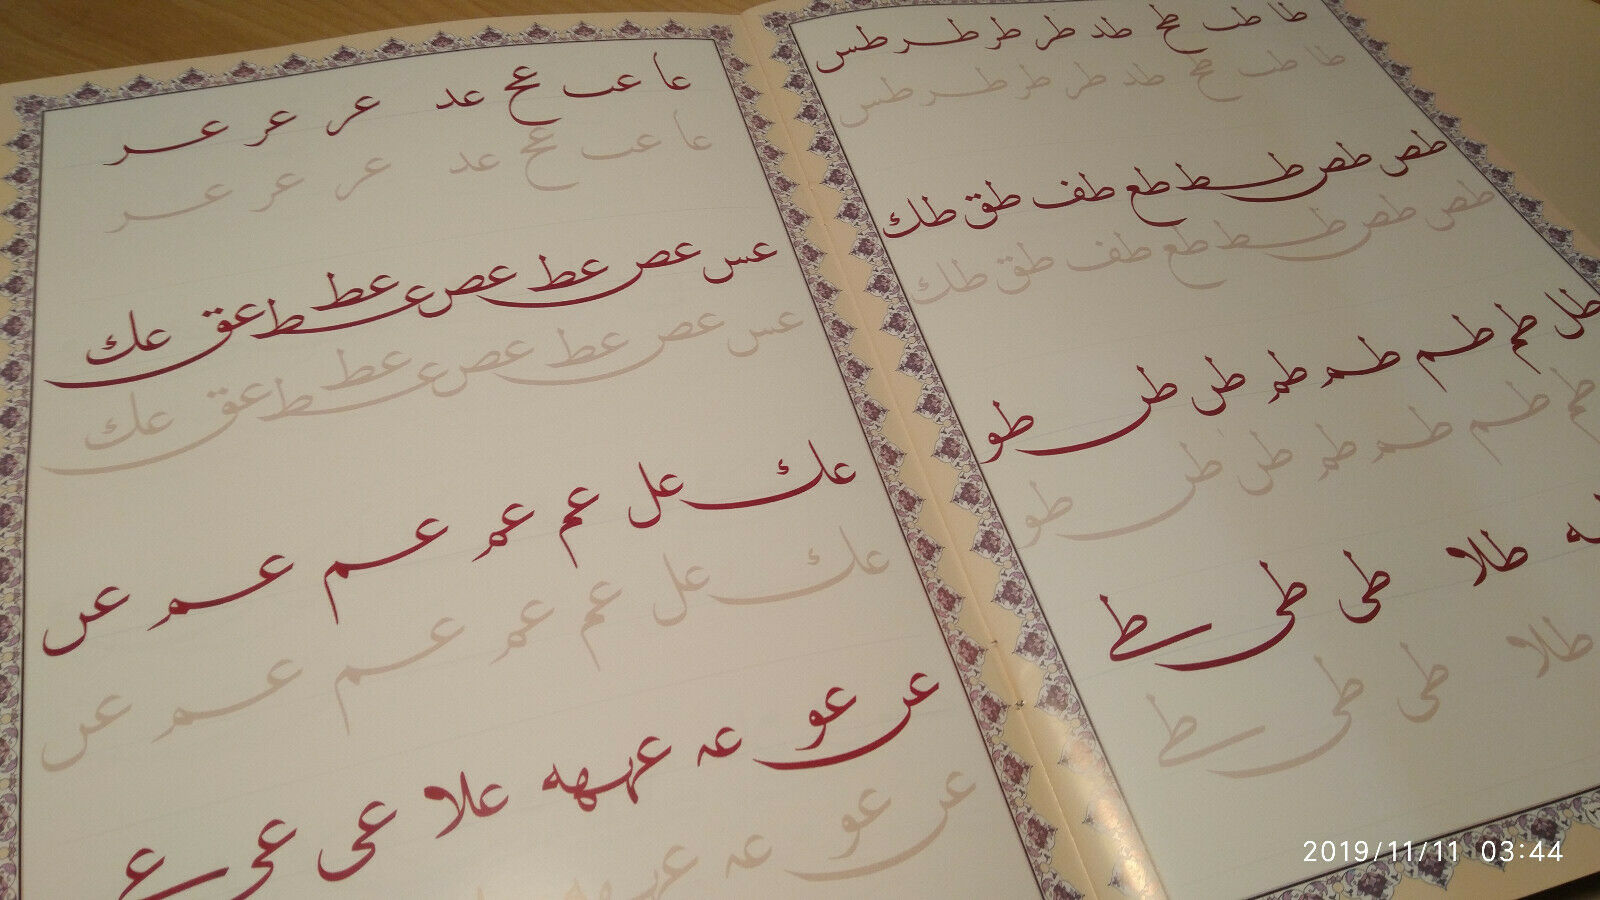 طا طب طح طد طر طر طر طس
طا طب طح طد طر طر طر طس
طص طص طط طع طف طق طك
طص طص طط طع طف طق طك
طل طم طم طم طم طں طں طو
طم طم طم طم طں طں طو
طلا طی طی طے
طلا طی طی طے
عا عب عح عد عر عر عر
عا عب عح عد عر عر عر
عس عص عط عص عط عط عق عك
عس عص عط عص عط عط عق عك
عك عل عم عم عم عم عں
عك عل عم عم عم عم عں
عں عو عه عهه علا عی عی عے
عں عو عه عهه
2019/11/11 03:44